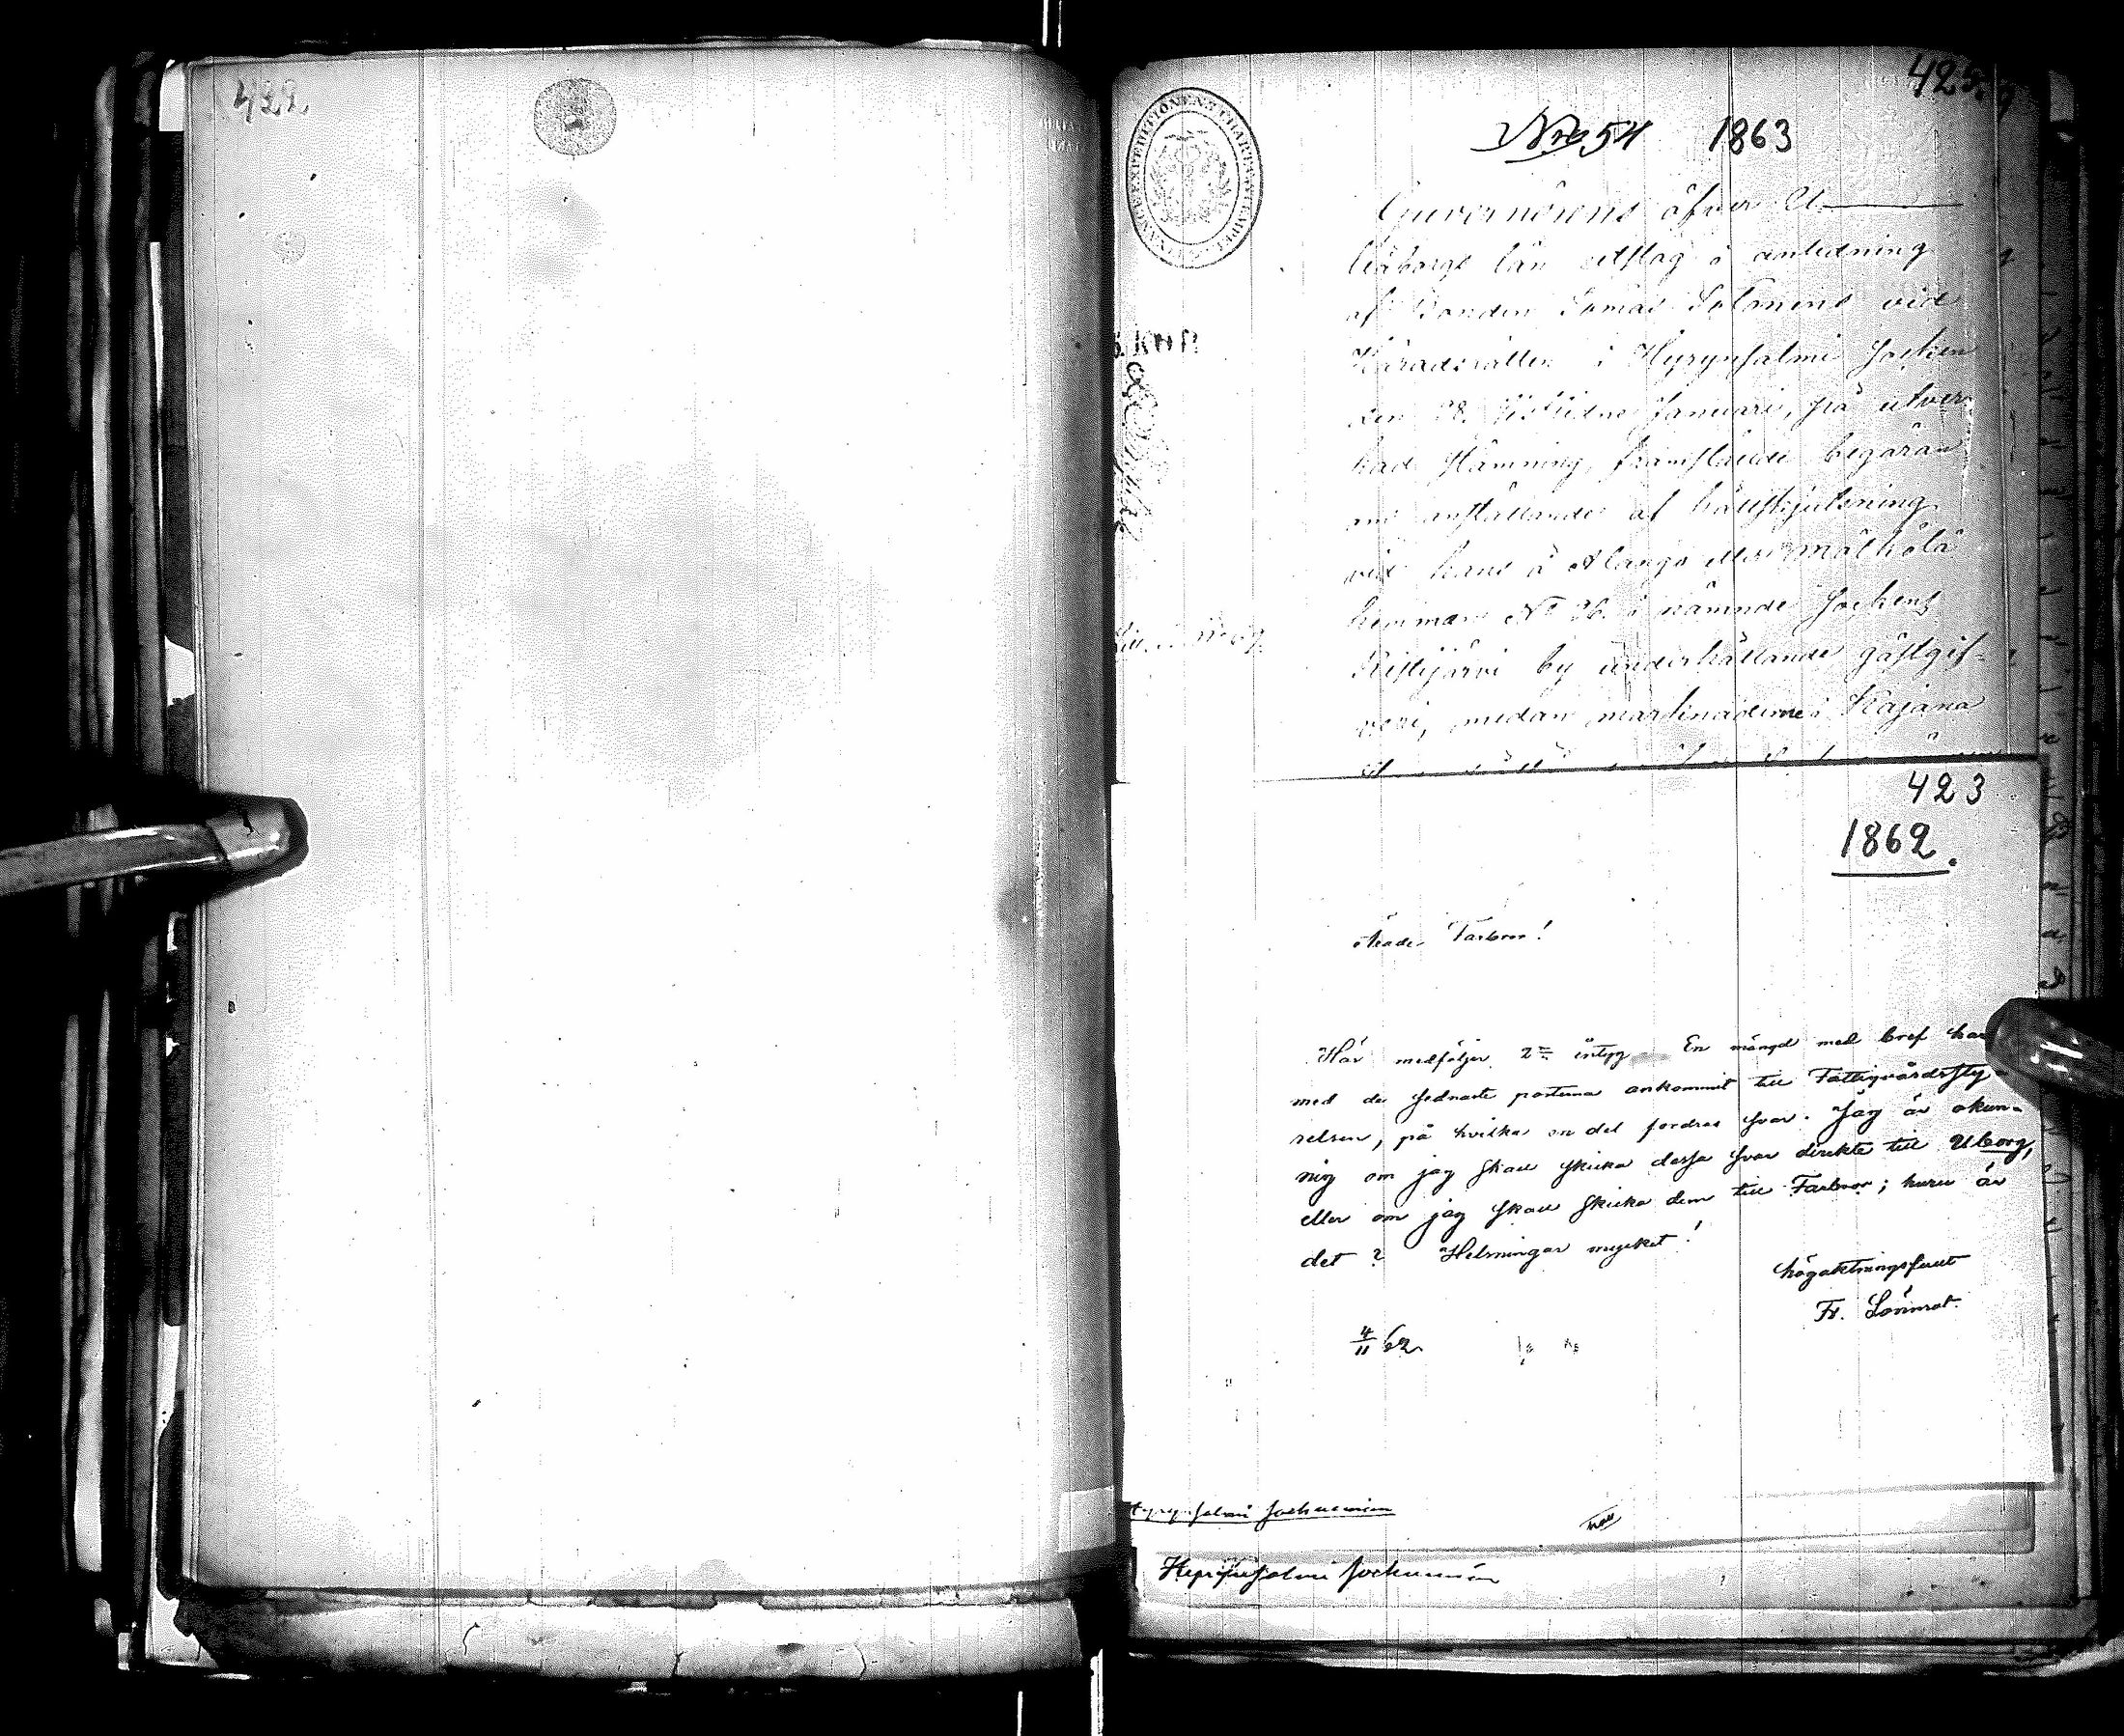 422.
425.
Nro 54 1863
Guvernörens öfver U
leåborgs län utslag i anledning
af Bonden Tomas Tolonens vid
Häradsrätten i Hyrynsalmi Socken
den 28. sistlidne Januari, på utver
kad stämning, framstälde begäran
om anställande af hållskjutsning
vid hans å Alanga eller Mälkölä
hemman No 26. i nämnde Sockens
Ristijärvi by underhållande gästgif-
veri, medan marknaderne i Kajana
423
1862.
Ärade Farbror!
Här medföljer 2ne intyg. En mängd med bref har
med de sednaste posterna ankommit till Fattigvårdssty-
relsen, på hvilka en del fordras svar. Jag är okun-
nig om jag skall skicka dessa svar direkte till Uborg,
eller om jag skall skicka dem till Farbror; huru är
det? Helsningar mycket!
högaktningsfullt
Fr. Lönnrot.
4/11 62.
Hyrynsalmi Sockenmän
Hyrynsalmi Sockenmän